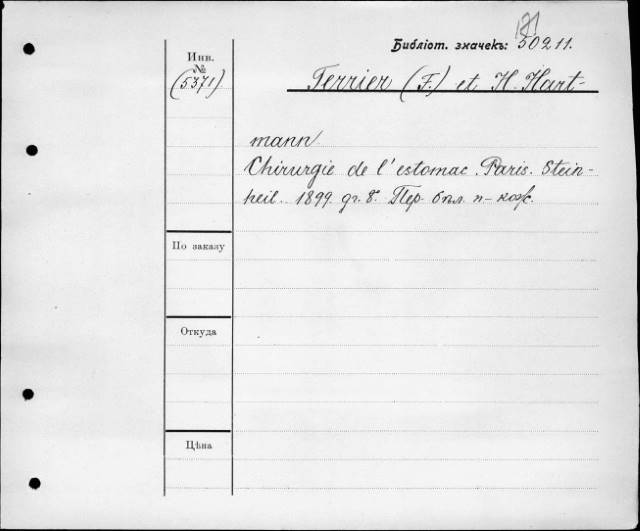 121
Библіот. значекъ: 50211.
Инв.
№
(5371)
Terrier (F.) et H. Hart-
mann
Chirurgie de l'estomac. Paris. Stein-
heil. 1899. gr. 8. Пер. бпл. п-кож.
По заказу
Откуда
Цѣна